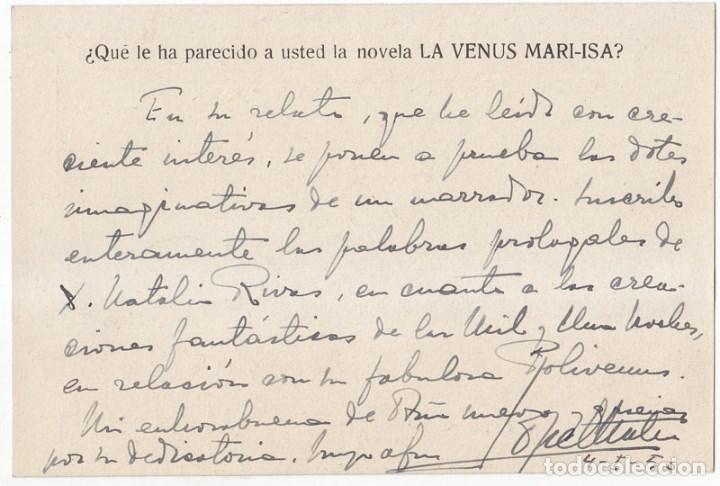 ¿Qué le ha parecido a usted la novela LA VENUS MARI-ISA?
En su relato, que he leído con cre-
ciente interés, se ponen a prueba las dotes
imaginativas de un narrador. Suscribo
enteramente las palabras prologales de
X. Natalio Rivas, en cuanto a las crea-
ciones fantásticas de las Mil y Una Noches,
en relación con su fabulosa Polivenus.
Mi enhorabuena de y gracias
por su dedicatoria. Muy afmo
todocoleccion